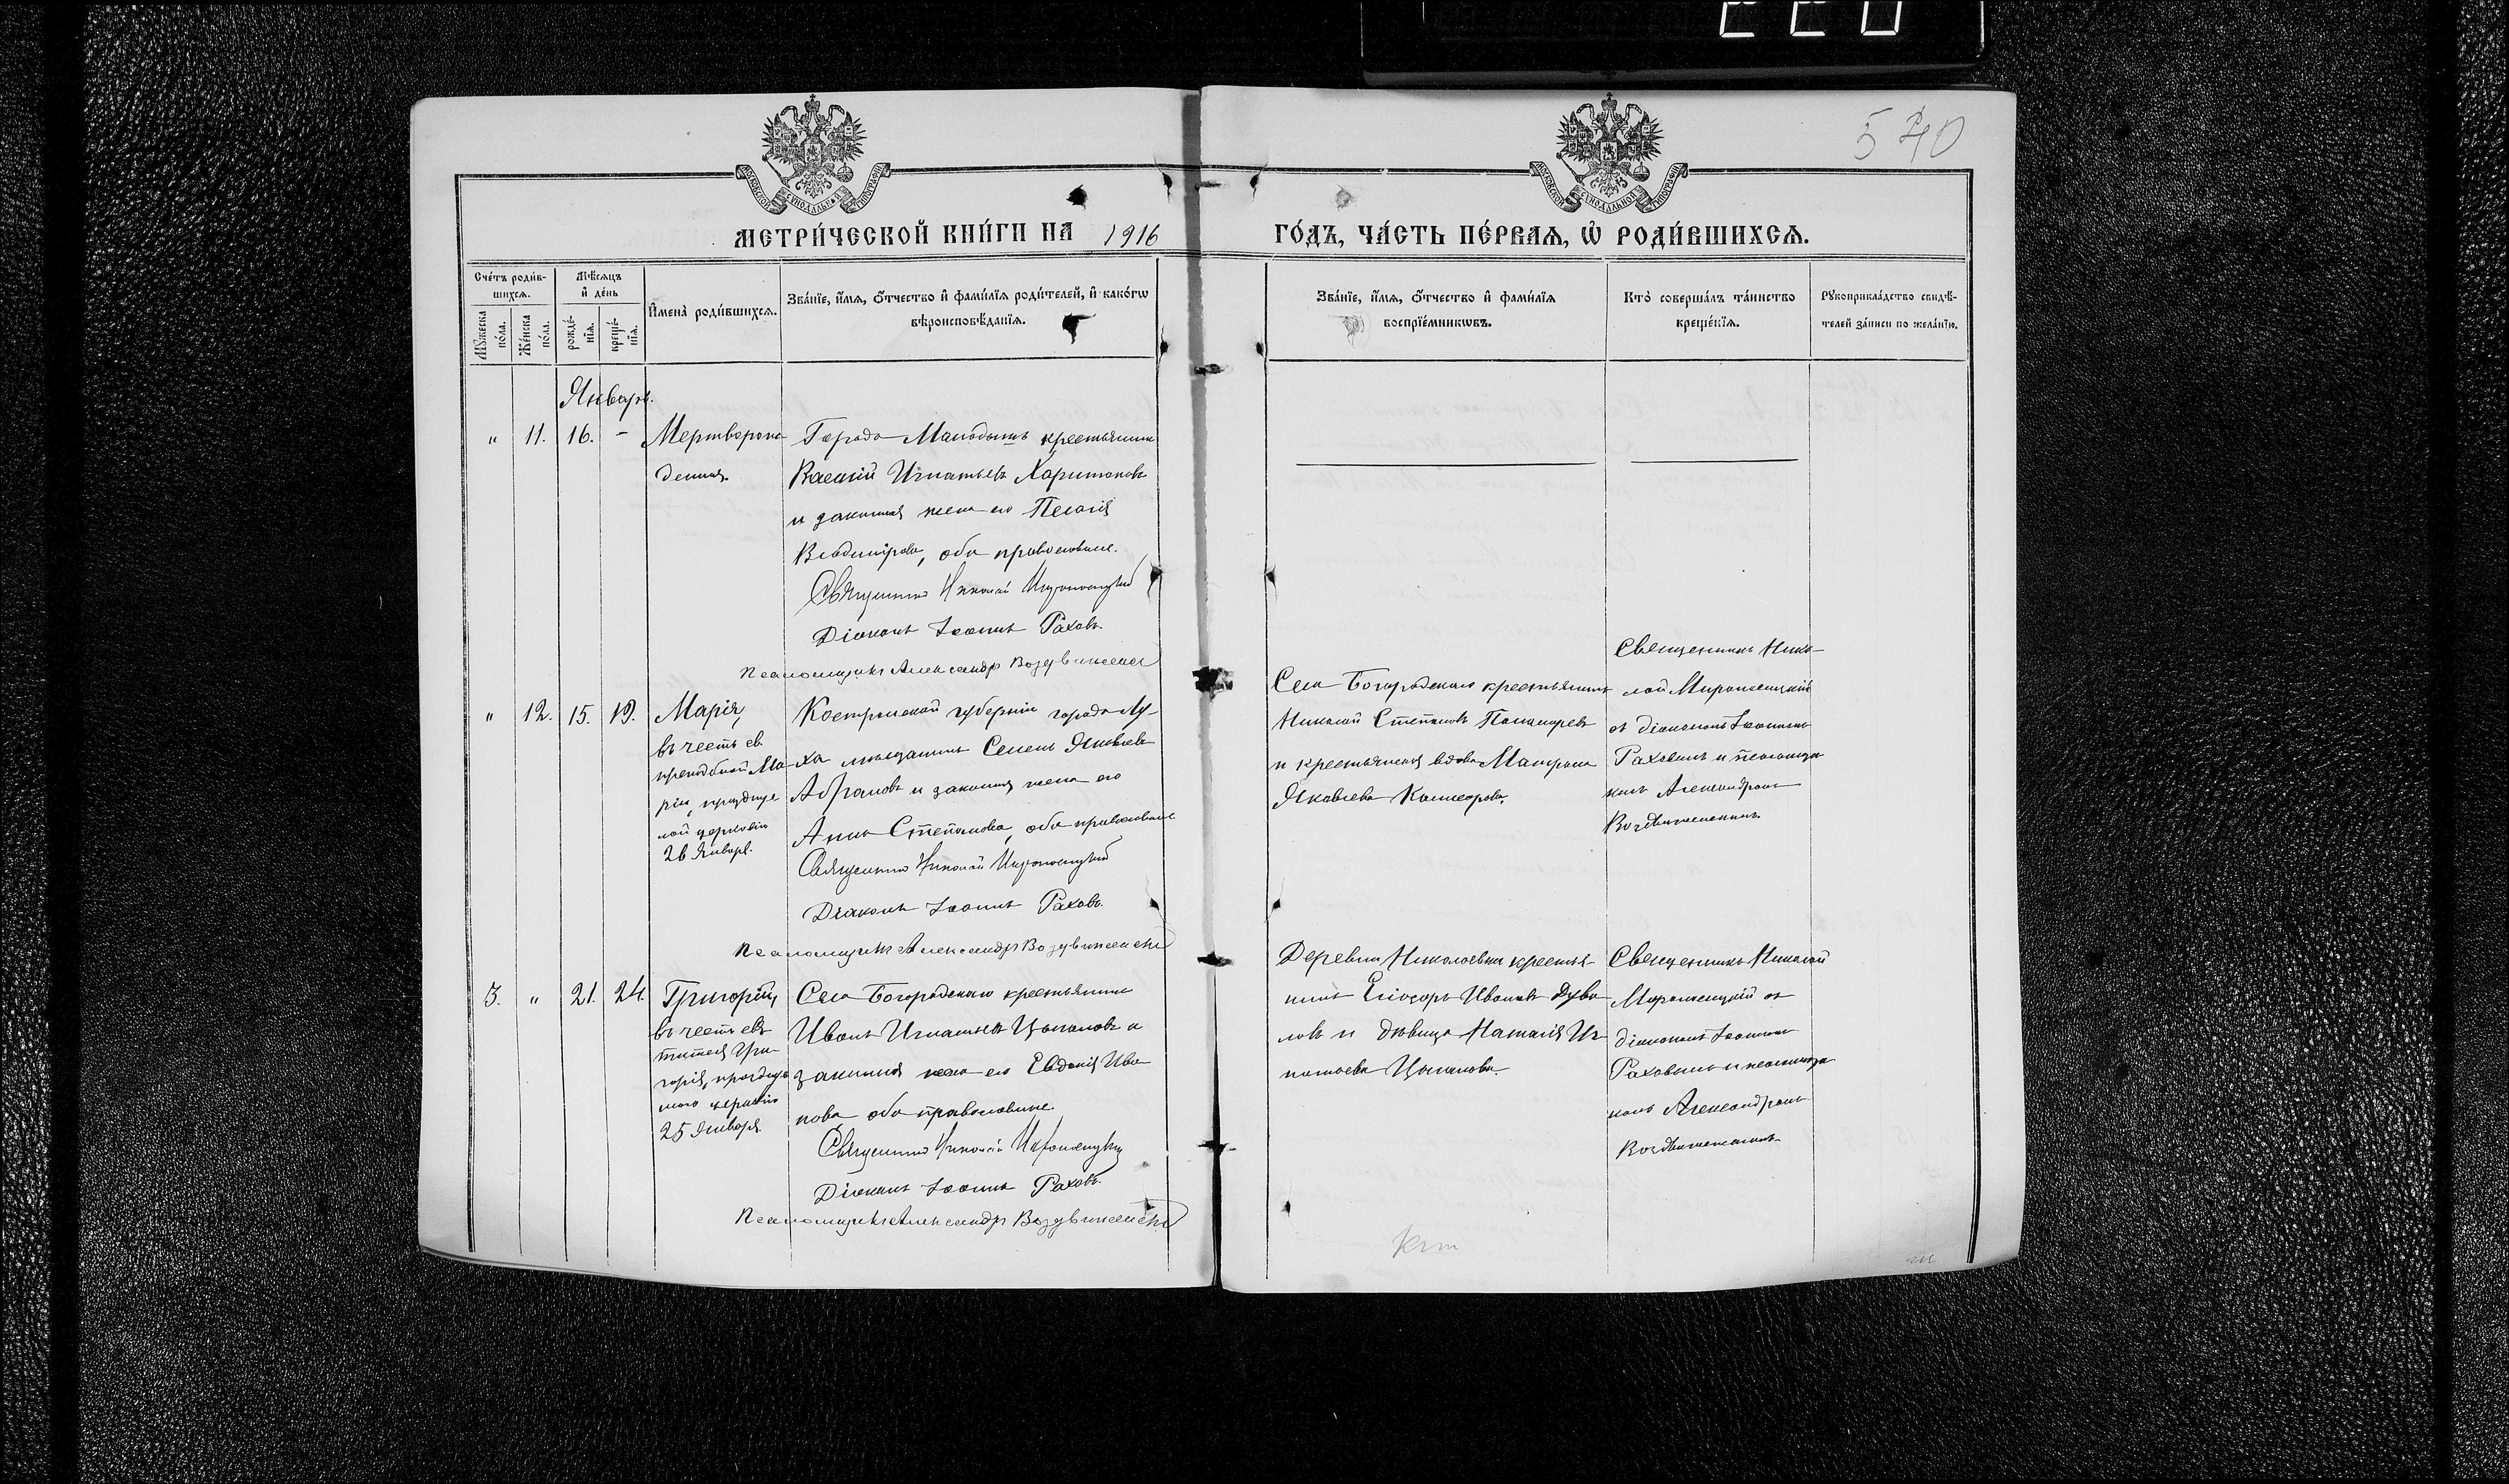 220
540
МОСКОВСКОЙ СѴНОДАЛЬНОЙ ТИПОГРАФІИ
МОСКОВСКОЙ СѴНОДАЛЬНОЙ ТИПОГРАФІИ
МЕТРИ́ЧЕСКОЙ КНИ́ГИ НА 1916
ГО́ДЪ, ЧА́СТЬ ПЕ́РВАѦ, Ѡ РОДИ́ВШИХСѦ.
Сче́тъ роди́в-
шихсѧ.
Мꙋ́жеска по́ла.
Же́нска по́ла.
Мѣ́сѧцъ и҆ де́нь
рожде́-нїѧ.
креще́-нїѧ.
И҆мена̀ роди́вшихсѧ.
Зва́нїе, и҆́мѧ, ѻ҆́тчество и҆ фами́лїѧ роди́телей, и҆ како́гѡ
вѣроисповѣ́данїѧ.
Зва́нїе, и҆́мѧ, ѻ҆́тчество и҆ фами́лїѧ
воспрїе́мникѡвъ.
Кто̀ соверша́лъ та́инство
креще́нїѧ.
Рꙋкоприкла́дство свидѣ́-
телей за́писи по жела́нїю.
Январь.
" 11. 16. - Мертворож-
денная.
Города крестьянинъ
Василій Игнатьевъ Харитоновъ
и законная жена его
Владимірова, оба православные.
Священникъ Николай Мироносицкій
Діаконъ Іоаннъ Раховъ.
Псаломщикъ Александръ Воздвиженскій
" 12. 15. 19. Марія,
въ честь св.
преподобной Ма-
ріи, празднуе
мой церковію
26 Января.
Костромской губерніи города Лу-
ха мѣщанинъ Семенъ Яковлевъ
Абрамовъ и законная жена его
Анна Степанова, оба православные
Священникъ Николай Мироносицкій
Діаконъ Іоаннъ Раховъ.
Псаломщикъ Александръ Воздвиженскій
Села Богородскаго крестьянинъ
Николай Степановъ Пономаревъ
и крестьянская вдова Матрона
Яковлева
Священникъ Нико-
лай Мироносицкій
съ діакономъ Іоанномъ
Раховымъ и псаломщи
комъ Александромъ
Воздвиженскимъ.
3. " 21. 24. Григорій,
въ честь свя
тителя Гри-
горія, празднуе
маго церковію
25 Января.
Села Богородскаго крестьянинъ
Иванъ Игнатьевъ Цыгановъ и
законная жена его Евдокія Ива
нова оба православные.
Священникъ Николай Мироносицкій
Діаконъ Іоаннъ Раховъ.
Псаломщикъ Александръ Воздвиженскій
Деревни Николаевки крестья-
нинъ Ивановъ
и дѣвица Наталія Иг
натьева Цыганова.
Священникъ Николай
Мироносицкій съ
діакономъ Іоанномъ
Раховымъ и псаломщи
комъ Александромъ
Воздвиженскимъ.